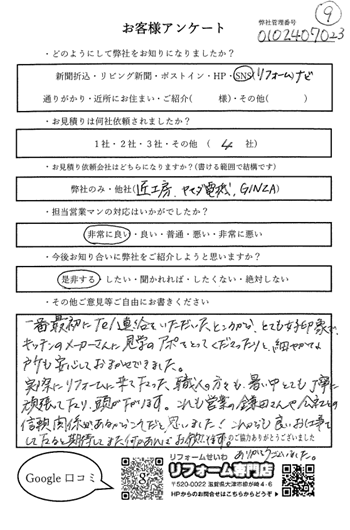 ⑨
お客様アンケート
弊社管理番号
0102407023
・どのようにして弊社をお知りになりましたか？
新聞折込・リビング新聞・ポストイン・HP・SNS(リフォームナビ
通りがかり・近所にお住まい・ご紹介(　　様)・その他(　　)
・お見積りは何社依頼されましたか？
1社・2社・3社・その他（　4　社）
・お見積り依頼会社はどちらになりますか？(書ける範囲で結構です)
弊社のみ・他社(匠工房、ヤマダ電機、GINZA)
・担当営業マンの対応はいかがでしたか？
非常に良い・良い・普通・悪い・非常に悪い
・今後お知り合いに弊社をご紹介しようと思いますか？
是非する・したい・聞かれれば・したくない・絶対しない
・その他ご意見等ご自由にお書きください
一番最初にTel連絡をいただいたところが、とても好印象で、
キッチンのメーカーさんに見学のアポをとってくださったりと、細やかで
とても安心しておまかせできました。
実際にリフォームに来て下さった、職人の方々も、暑い中とても丁寧に
頑張って下さり、頭が下がります。これも営業の鎌田さんや会社との
信頼関係があるからこそだと思いました！これからも良いお仕事を
して下さると期待してます。何かあれば、お願いします。
ご協力ありがとうございました
ありがとうございました。
Google 口コミ
リフォームせいわ
リフォーム専門店
〒520-0022 滋賀県大津市柳が崎4-6
HPからのお問合せはこちらからどうぞ